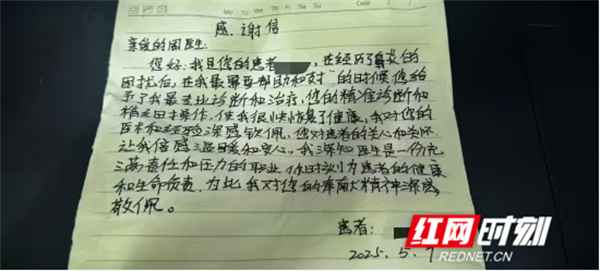 Mo Tu We Th Fr Sa Su Date
感谢信
亲爱的周医生:
您好:我是您的患者 ,在经历了 的
困扰后,在我最需要帮助和 的时候您给
予了我最专业诊断和治疗,您的精准诊断和
精 操作,使我很快恢复了健康,我对您的
医术和经验深感钦佩,您对患者的关心和关怀
让我倍感温暖和安心,我深知医生是一份充
满责任和压力的职业,你时刻为患者的健康
和生命负责,为此我对您的奉献精神深感
敬佩。
患者:
2025.5.7
红网时刻
REDNET.CN